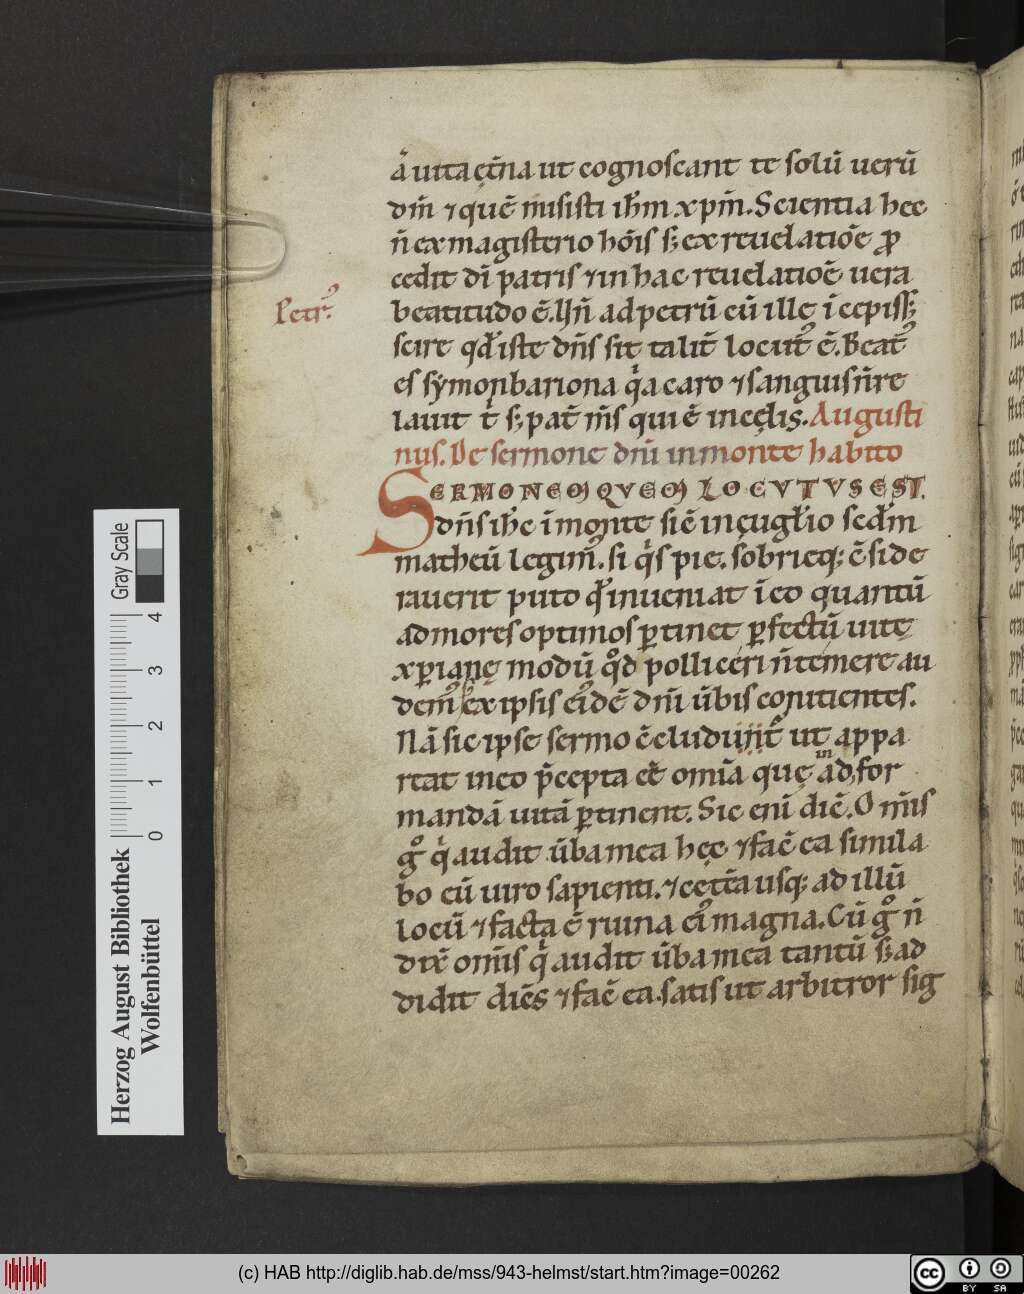 a̔ uita ęt̄na ut cognoscant te solū uerū
dm̄ ⁊ quē misisti ih̄m xpm̄. Scientia hec
n̄ ex magisterio hōis s; ex reuelatiōe ꝓ
cedit dī patris ⁊ in hac reuelatiōē uera
beatitudo ē. Hn̄ ad petrū cū ille ī cepiss;
Petr᷒.
scire qd̕ iste dn̄s sit talit̄ locut᷒ ē. Beat᷒
es sẏmon bariona qͥa caro ⁊ sanguis n̄ re
lauit tͥ s; pat̄ m̄s qui ē in cęlis. Augusti
nus. De sermone dn̄i in monte habito
SERMONEM QVEM LOCVTVS EST.
dn̄s ih̄c ī monte sic̄ in ęuglīo scd̄m
matheū legim᷒. si qͥs pie. sobrieq; c̄side
rauerit puto qd̕ inueniat ī eo quantū
ad mores optimos ꝑtinet ꝑfectū uitę
xp̄ianę modū qͦd polliceri n̄ temere au
dem᷒ s; ex ipsis ei᷒dē dn̄i ūbis conitientes.
Nā sic ipse sermo c̄cludiiit̄ ut appa
reat in eo p̄cepta eē omīa quę ad in for
mandā uitā ꝑtinent. Sic enī dic̄. Om̄is
gͦ qͥ audit ūba mea hęc ⁊ fac̄ ea simila
bo cū uiro sapienti. ⁊ cet̄a usq; ad illū
locū ⁊ facta ē ruina ei᷒ magna. Cū gͦ n̄
dix̄ om̄is qͥ audit ūba mea tantū s; ad
didit dicēs ⁊ fac̄ ea. satis ut arbitror sig
Gray Scale
0 1 2 3 4
Herzog August Bibliothek
Wolfenbüttel
(c) HAB http://diglib.hab.de/mss/943-helmst/start.htm?image=00262
cc BY SA